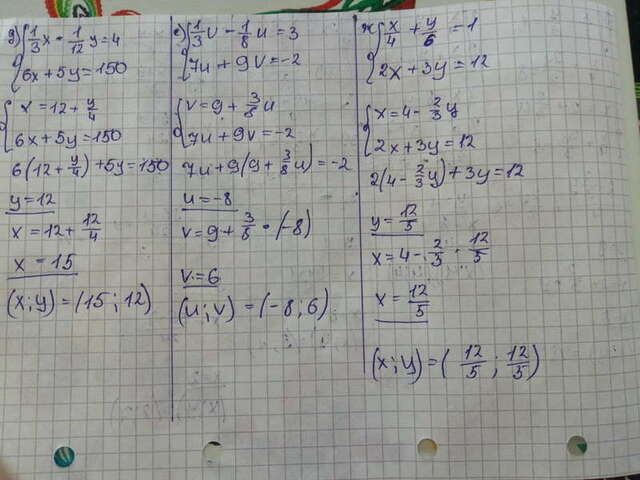 д) { 1/3 x - 1/12 y = 4
6x + 5y = 150
{ x = 12 + y/4
6x + 5y = 150
6(12 + y/4) + 5y = 150
y = 12
x = 12 + 12/4
x = 15
(x; y) = (15; 12)
е) { 1/3 v - 1/8 u = 3
7u + 9v = -2
{ v = 9 + 3/8 u
7u + 9v = -2
7u + 9(9 + 3/8 u) = -2
u = -8
v = 9 + 3/8 · (-8)
v = 6
(u; v) = (-8; 6)
ж { x/4 + y/6 = 1
2x + 3y = 12
{ x = 4 - 2/3 y
2x + 3y = 12
2(4 - 2/3 y) + 3y = 12
y = 12/5
x = 4 - 2/3 · 12/5
x = 12/5
(x; y) = (12/5; 12/5)